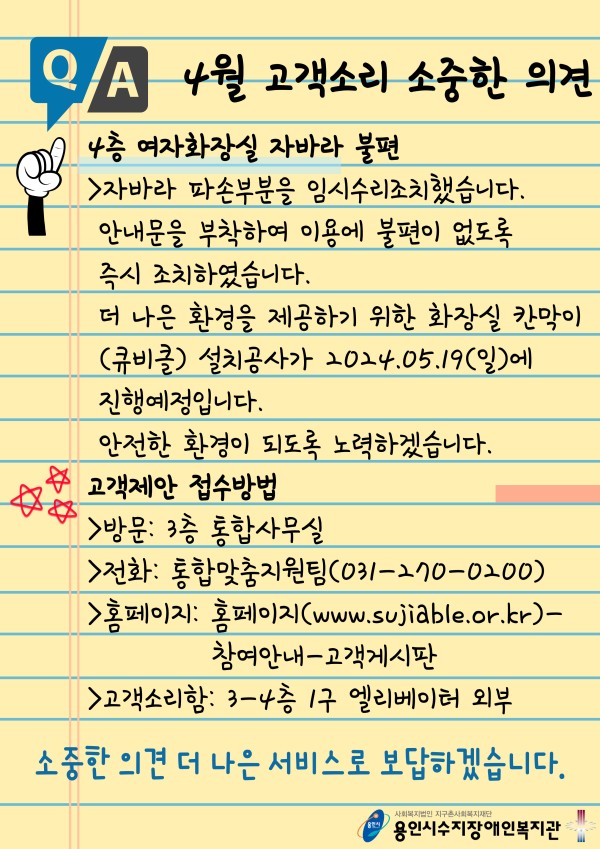 Q A
4월 고객소리 소중한 의견
4층 여자화장실 자바라 불편
>자바라 파손부분을 임시수리조치했습니다.
안내문을 부착하여 이용에 불편이 없도록
즉시 조치하였습니다.
더 나은 환경을 제공하기 위한 화장실 칸막이
(큐비클) 설치공사가 2024.05.19(일)에
진행예정입니다.
안전한 환경이 되도록 노력하겠습니다.
고객제안 접수방법
>방문: 3층 통합사무실
>전화: 통합맞춤지원팀(031-270-0200)
>홈페이지: 홈페이지(www.sujiable.or.kr)-
참여안내-고객게시판
>고객소리함: 3-4층 1구 엘리베이터 외부
소중한 의견 더 나은 서비스로 보답하겠습니다.
사회복지법인 지구촌사회복지재단
용인시
용인시수지장애인복지관